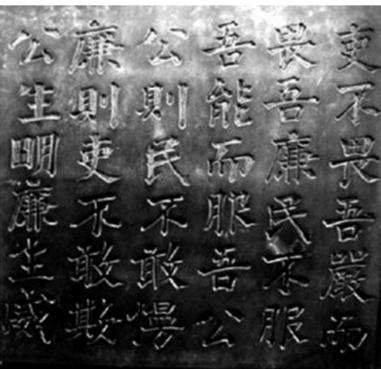 吏不畏吾嚴而
畏吾廉民不服
吾能而服吾公
公則民不敢慢
廉則吏不敢欺
公生明廉生威